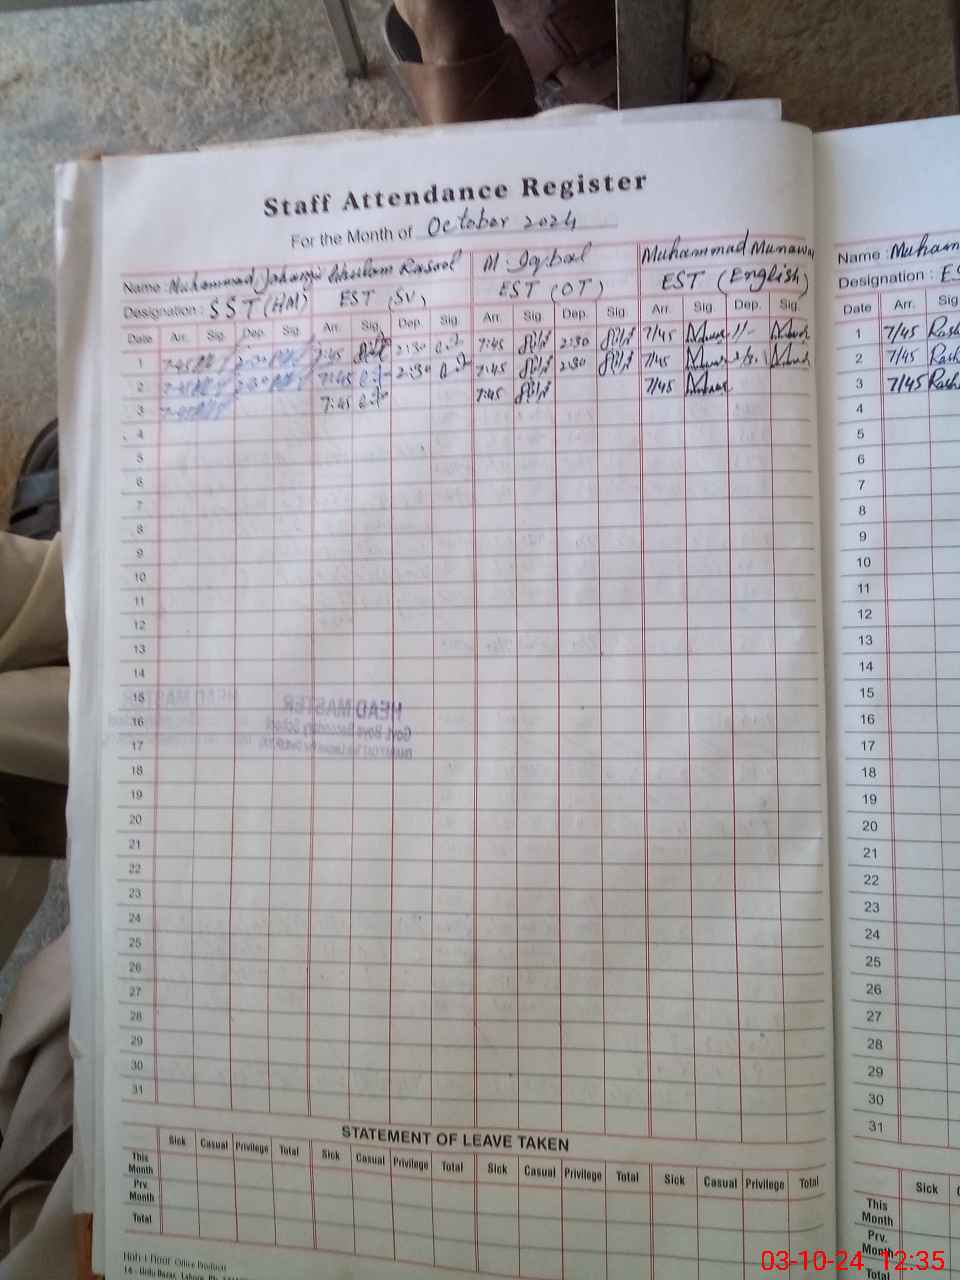 Staff Attendance Register
For the Month of October 2024
Name : Muhammad Jahangir Ghulam Rasool M. Iqbal Muhammad Munawar
Designation : SST (HM) EST (SV) EST (OT) EST (English)
Date Arr. Sig. Dep. Sig. Arr. Sig. Dep. Sig. Arr. Sig. Dep. Sig. Arr. Sig. Dep. Sig.
1 7:45 2:30 7:45 2:30 7:45 2:30 7/45
2 7:45 2:30 7:45 2:30 7:45 2:30 7/45
3 7:45 7:45 7:45 7/45
4
5
6
7
8
9
10
11
12
13
14
15
16
17
18
19
20
21
22
23
24
25
26
27
28
29
30
31
HEAD MASTER
Govt. Boys Secondary School
STATEMENT OF LEAVE TAKEN
Sick Casual Privilege Total Sick Casual Privilege Total Sick Casual Privilege Total Sick Casual Privilege Total
This Month
Prv. Month
Total
Office Products
14 - Urdu Bazar, Lahore. Ph.
Name : Muham
Designation : ES
Date Arr. Sig
1 7/45 Rash
2 7/45 Rash
3 7/45 Rash
4
5
6
7
8
9
10
11
12
13
14
15
16
17
18
19
20
21
22
23
24
25
26
27
28
29
30
31
Sick
This Month
Prv. Month
Total
03-10-24 12:35